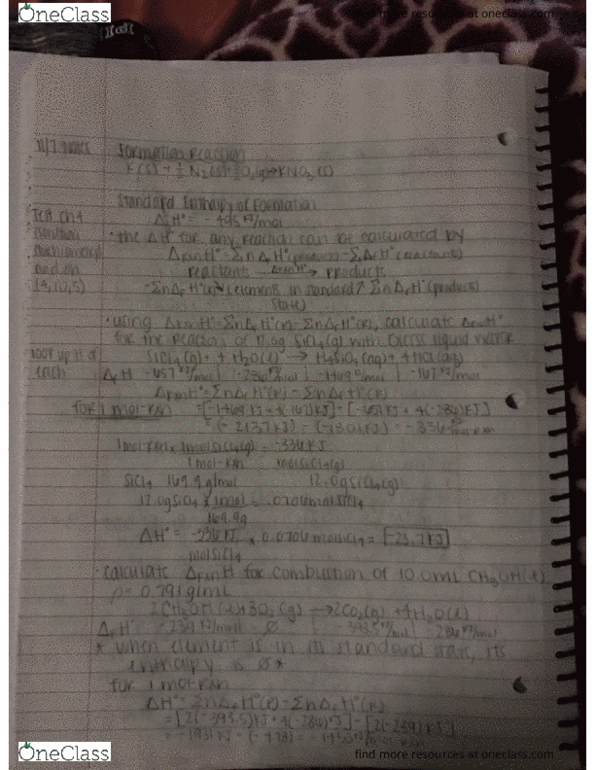 OneClass
find more resources at oneclass.com
11/7 Notes
Formation Reaction
K(s) + ½ N₂ (s) + O₂(g) → KNO₃ (s)
Standard Enthalpy of Formation
H° = - 495 kJ/mol
Test ch4
(solution
and on
(9,10,5)
· the ΔH° for any reaction can be calculated by
ΔrxnH° = ΣnΔfH°(products) - ΣnΔfH°(reactants)
reactants → products
elements in standard ΣnΔfH°(products)
state)
· using ΔrxnH° = ΣnΔfH° - ΣnΔfH°(R), calculate ΔrxnH°
for the reaction of 12.0g SiCl₄(g) with excess liquid water
look up H of
each
SiCl₄(g) + 4 H₂O(l) → H₄SiO₄(aq) + 4HCl(aq)
ΔfH -657 kJ/mol | -286 kJ/mol | -1469 kJ/mol | -167 kJ/mol
ΔrxnH° = ΣnΔfH°(P) - ΣnΔfH°(R)
for 1 mol-rxn = [-1469 kJ + 4(-167) kJ] - [-657 kJ + 4(-286) kJ]
= (-2137 kJ) - (-1801 kJ) = -336 kJ/mol rxn
1 mol-rxn x 1 mol SiCl₄(g) = -336 kJ
1 mol-rxn mol SiCl₄(g)
SiCl₄ 169.9 g/mol 12.0g SiCl₄(g)
12.0g SiCl₄ x 1 mol = .0706 mol SiCl₄
169.9g
ΔH° = -336 kJ x 0.0706 mol SiCl₄ = -23.7 kJ
mol SiCl₄
· calculate ΔrxnH for combustion of 10.0mL CH₃OH(l)
ρ = 0.791 g/mL
2CH₃OH (l) + 3O₂ (g) → 2CO₂(g) + 4H₂O(l)
ΔfH° -239 kJ/mol | 0 | -393.5 kJ/mol | -286 kJ/mol
* when element is in its standard state, its
enthalpy is 0 *
for 1 mol-rxn
ΔH° = ΣnΔfH°(P) - ΣnΔfH°(R)
= [2(-393.5) kJ + 4(-286) kJ] - [2(-239) kJ]
= -1931 kJ - (-478)
OneClass
find more resources at oneclass.com